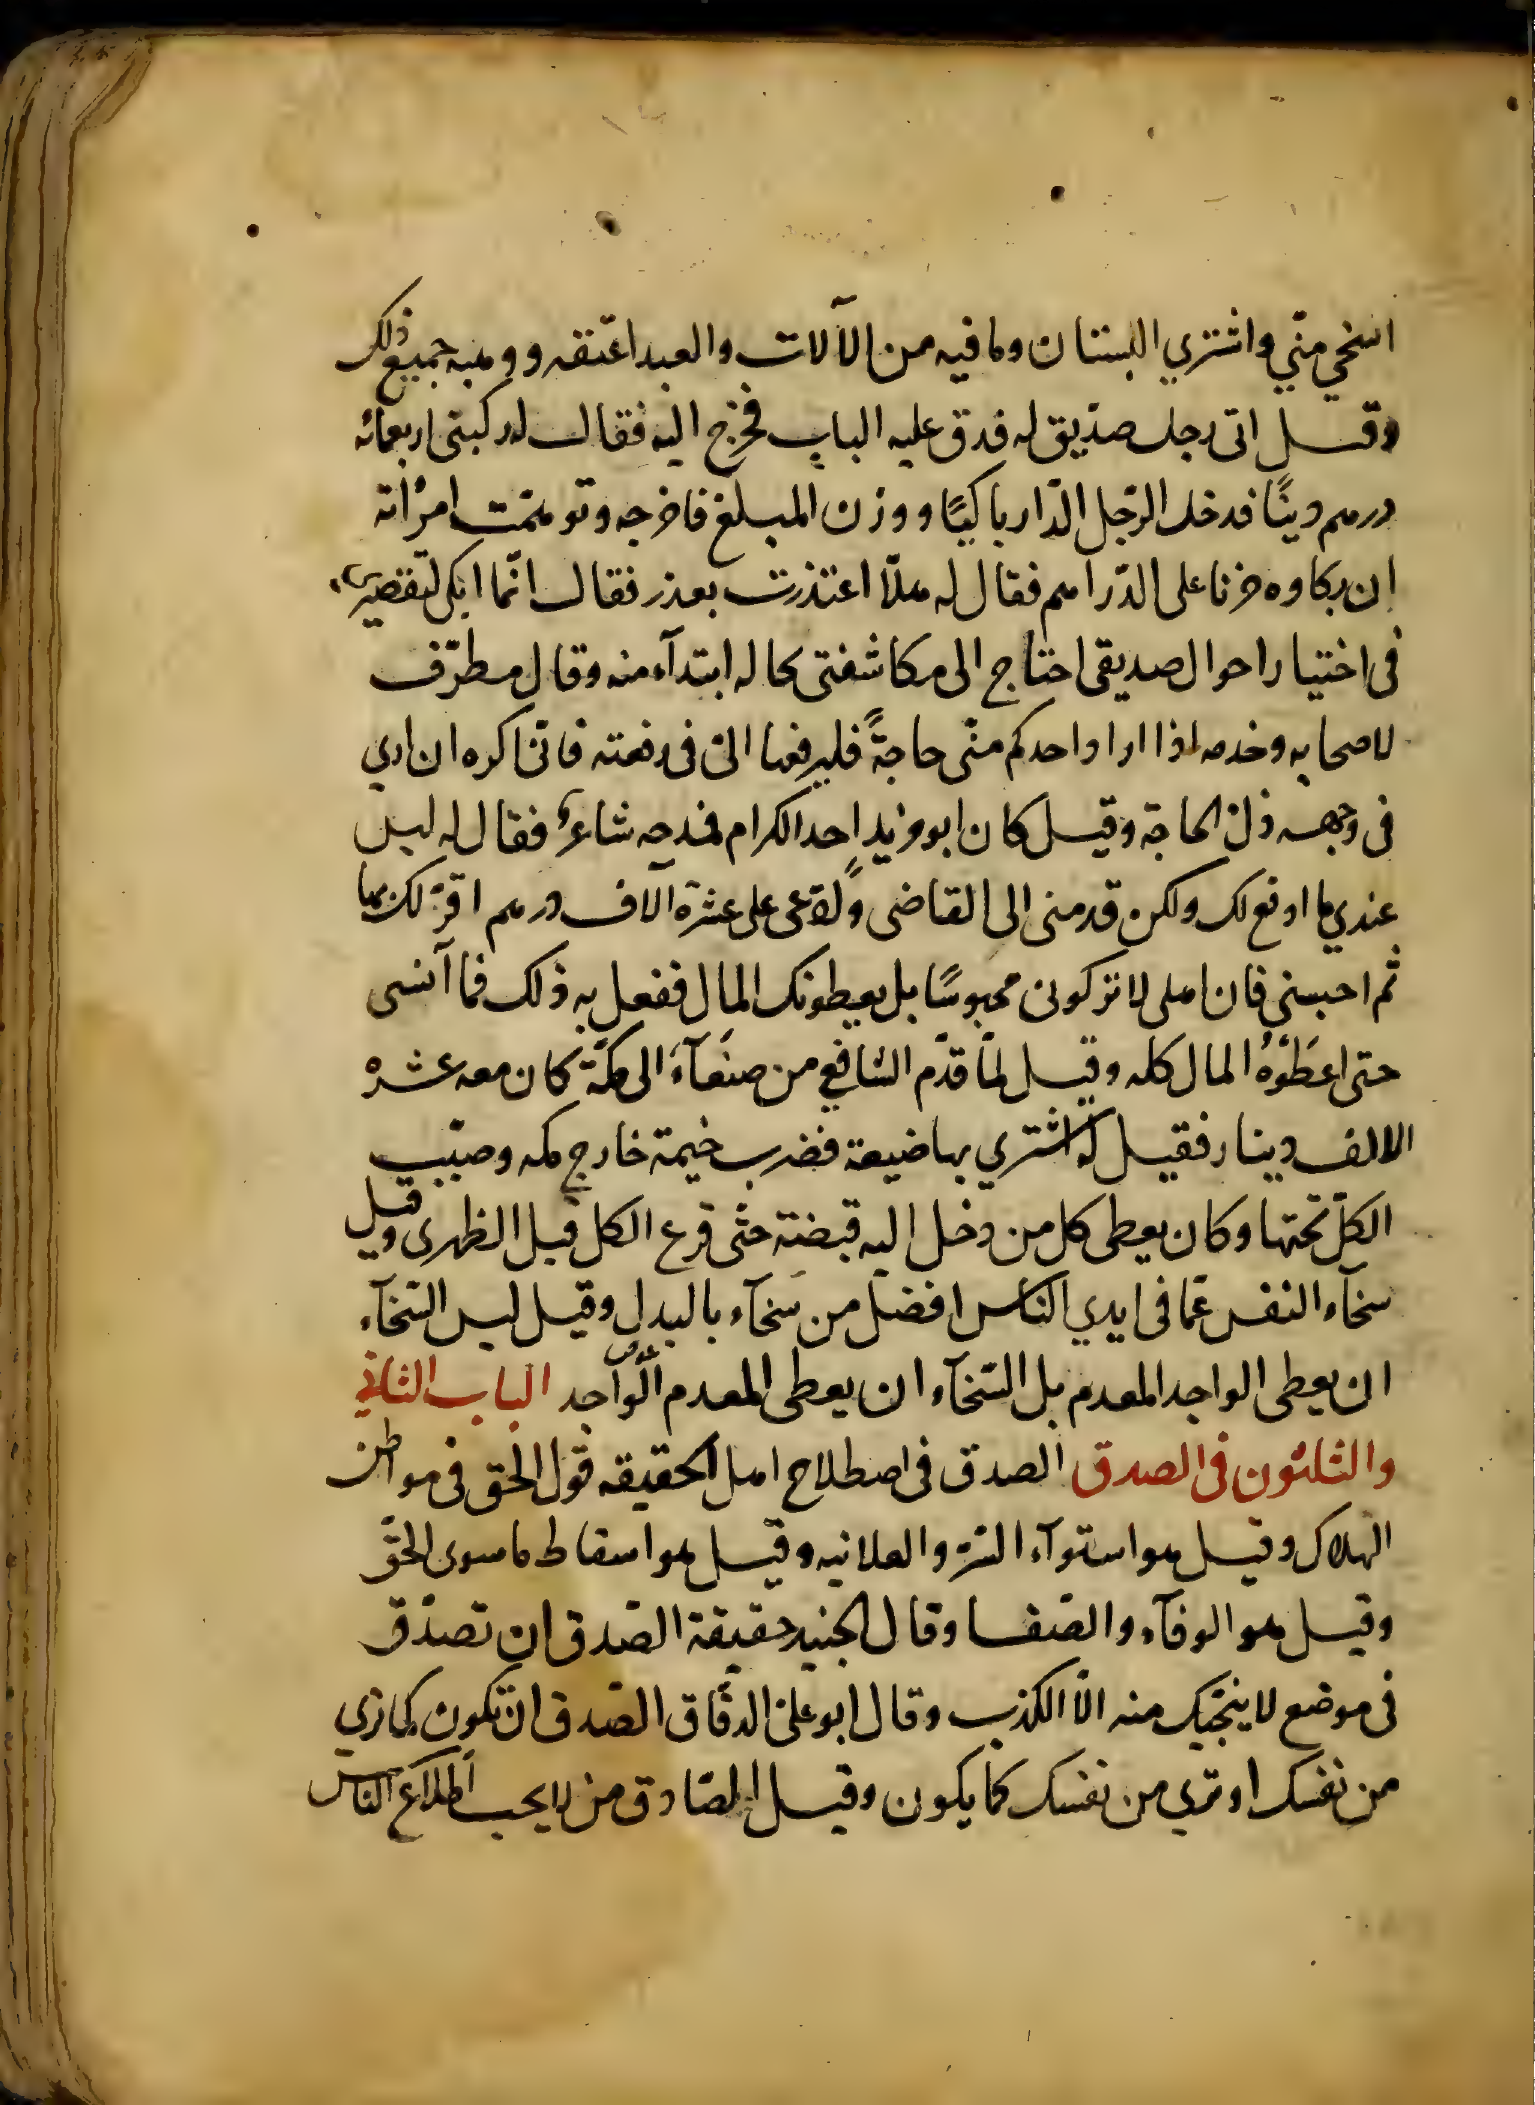 اسخي منّي واشتري البستان وما فيه من الآلات والعبد اعتقه ووهبه جميع ذلك
وقيل اتى رجل صدّيق له فدق عليه الباب فخرج اليه فقال له ركبتى اربعمائه
درهم دينًا فدخل الرّجل الدّار باكيًا ووزن المبلغ فاخرجه وتوهمت امرأته
ان بكاوه حزنا على الدّراهم فقال له هلّا اعتذرت بعذر فقال انّما ابكى لتقصيرى
فى اختيار احوال صديقى احتاج الى مكاشفتى بحاله ابتدآء منه وقال مطرّف
لاصحابه وخدمه اذا اراد احدكم منّى حاجةً فليرفعها الىّ فى رقعته فانّى اكره ان ارى
فى وجهه ذل الحاجة وقيل كان ابو مزيد احد الكرام فمدحه شاعرٌ فقال له ليس
عندي ما ادفع لك ولكن قدمنى الى القاضى وادّعى على عشرة آلاف درهم اقرّ لك بها
ثم احبسني فان اهلى لا تتركونى محبوسًا بل يعطونك المال ففعل به ذلك فما آنسى
حتى اعطَوْهُ المال كله وقيل لمّا قدّم الشافعي من صنعآءَ الى مكّة كان معه عشرة
الالف دينار فقيل له اشتري بها ضيعة فضرب خيمة خارج مكه وصبّب
الكلّ تحتها وكان يعطى كل من دخل اليه قبضة حتّى فرغ الكل قبل الظهرى وقيل
سخآء النفس عمّا فى ايدي الناس افضل من سخآء بالبدل وقيل ليس السّخآء
ان يعطى الواجد المعدم بل السّخآء ان يعطى المعدم الواجد الباب الثاني
والثلثون فى الصدق الصدق فى اصطلاح اهل الحقيقه قول الحق فى مواطن
الهلاك وقيل هو استوآء السّرّ والعلانيه وقيل هو اسقاط ما سوى الحقّ
وقيل هو الوفآء والصّفا وقال الجنيد حقيقة الصّدق ان تصدّق
فى موضع لا ينجّيك منه الاّ الكذب وقال ابو علىّ الدقّاق الصّدق ان تكون كما ترى
من نفسك او ترى من نفسك كما يكون وقيل الصّادق من لا يحب اطلاع الناس